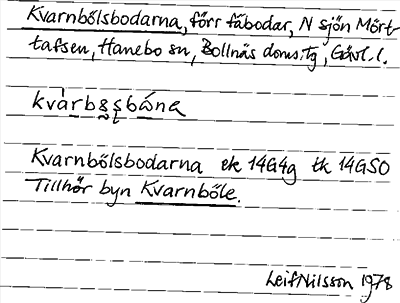 Kvarnbölsbodarna, förr fäbodar, N sjön Mört-
tafsen, Hanebo sn, Bollnäs doms:tg, Gävl. l.
Kvarnbölsbodarna ek 14G4g tk 14GSO
Tillhör byn Kvarnböle.
Leif Nilsson 1978